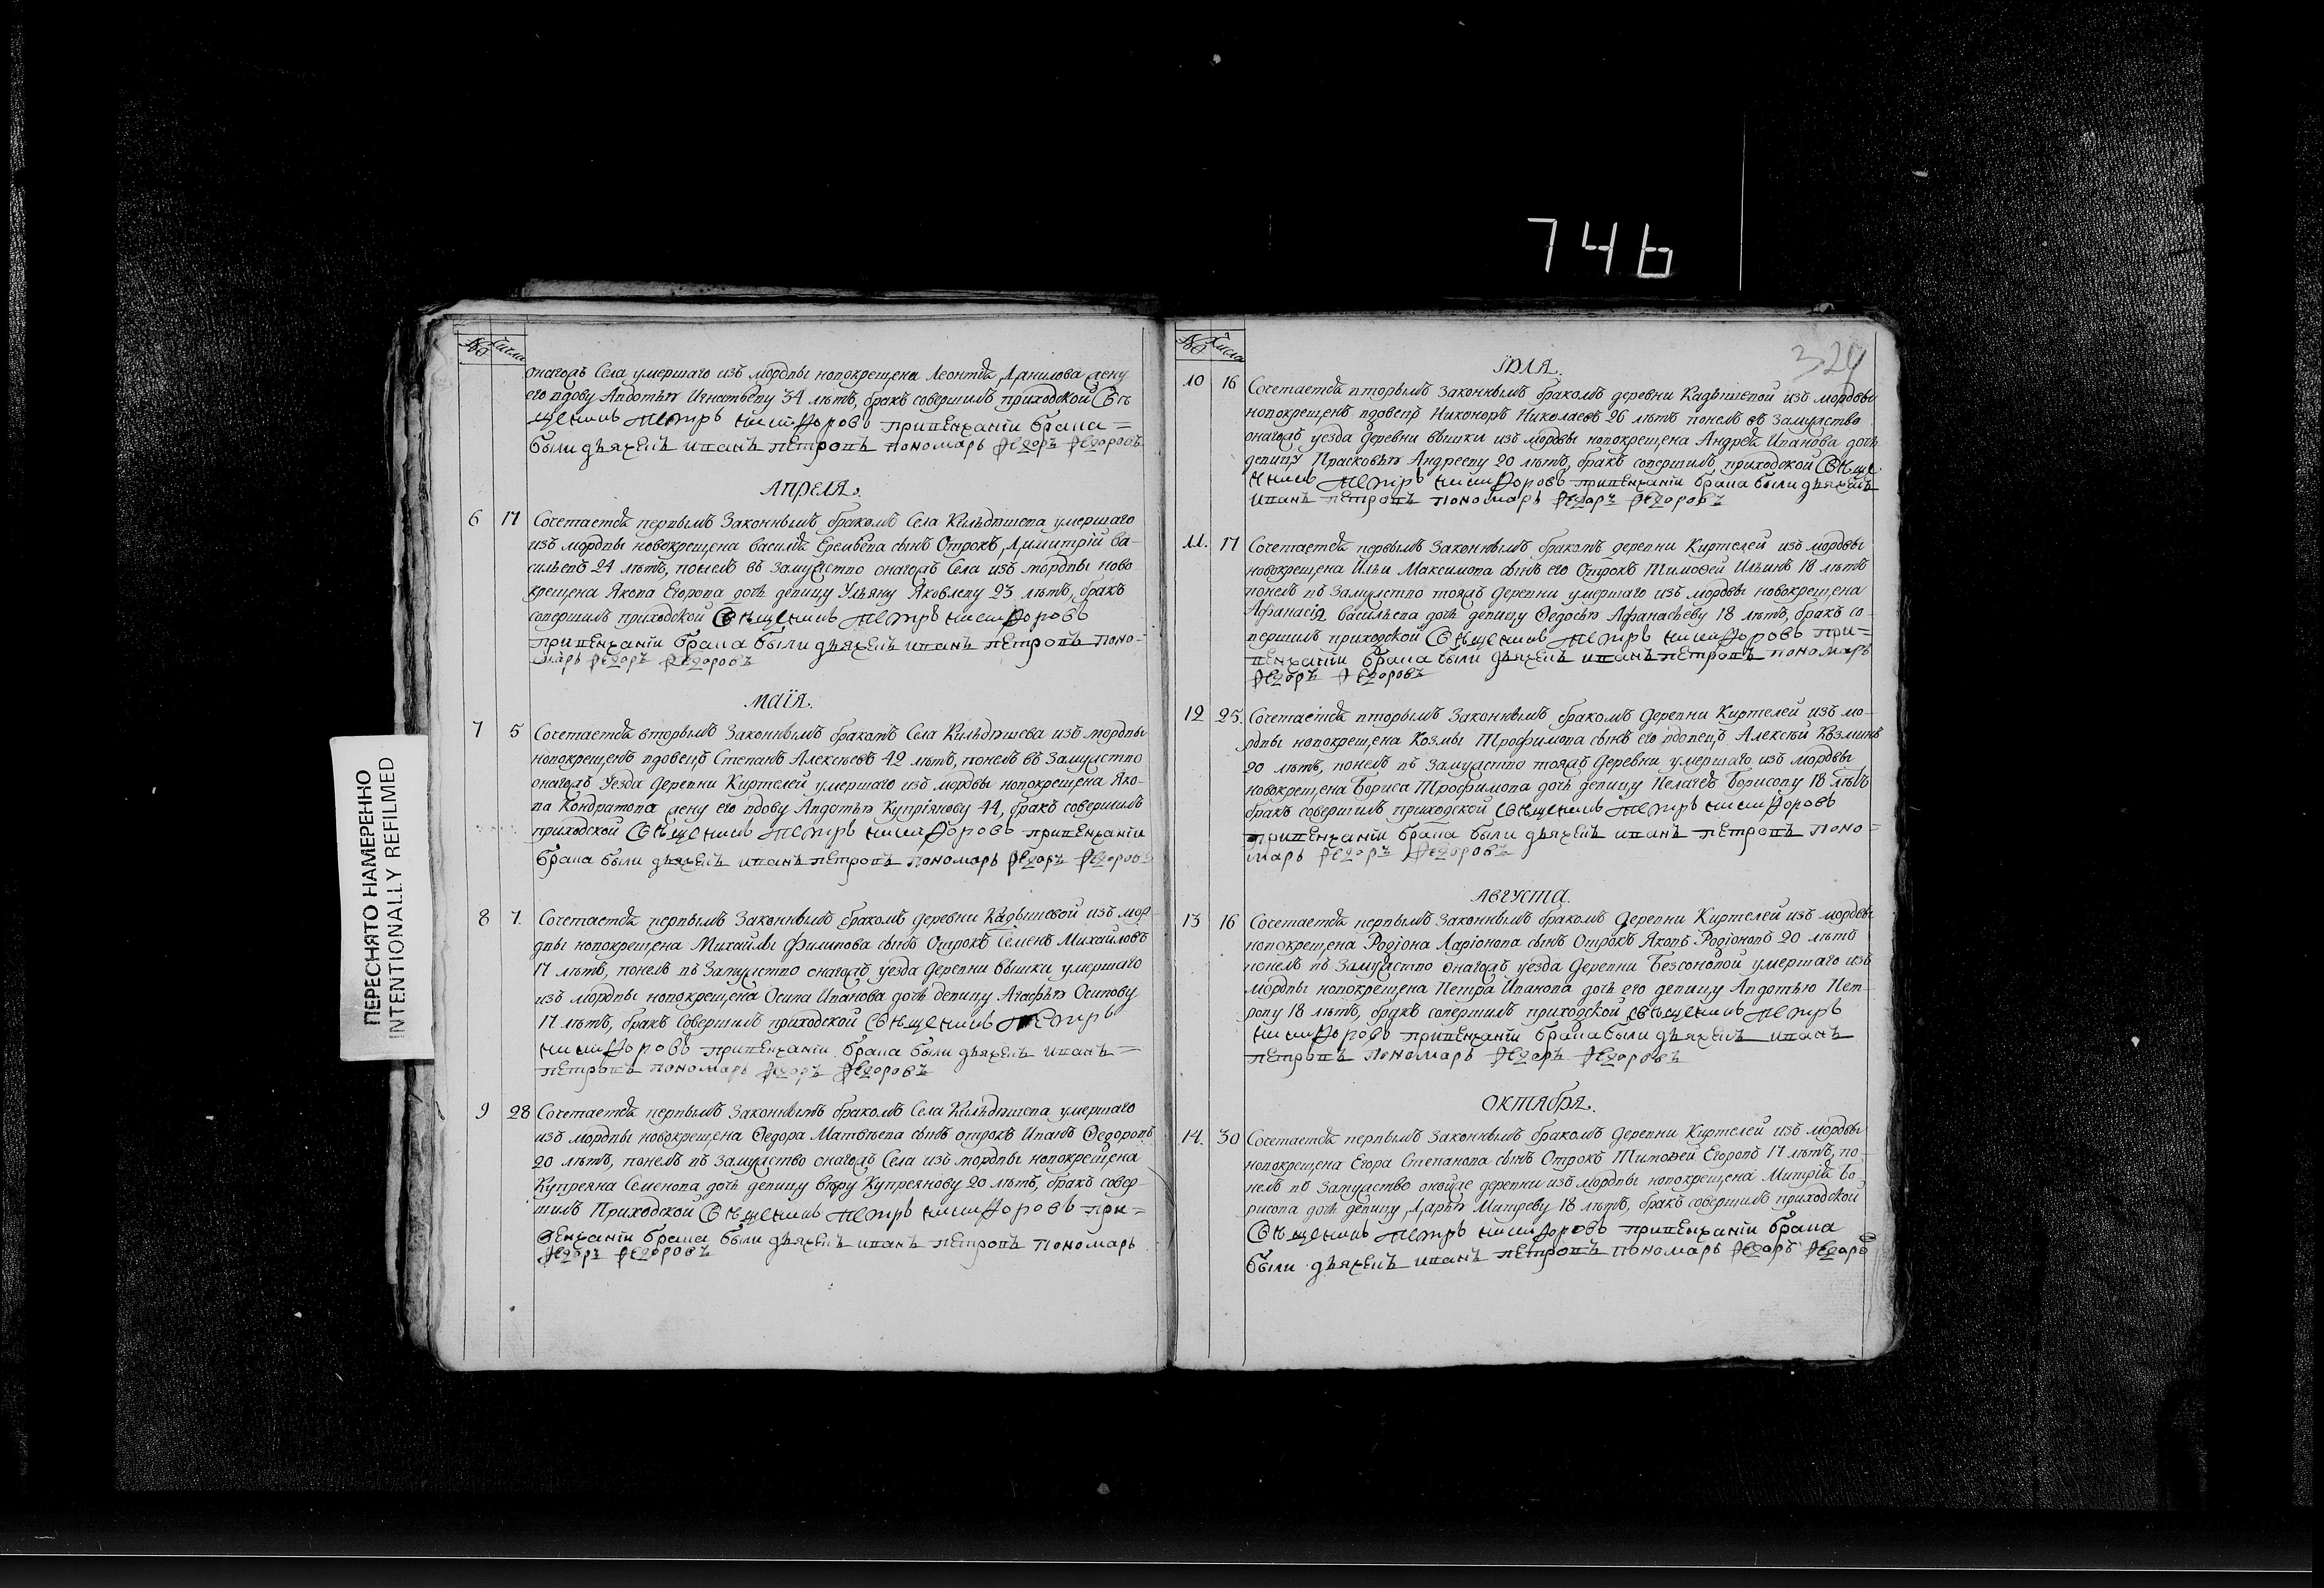 746
ПЕРЕСНЯТО НАМЕРЕННО
INTENTIONALLY REFILMED
№ числа
онагожъ Села умершаго изъ мордвы новокрещена Леонтия Данилова жену
его вдову Авдотью Игнатьеву 34 лѣтъ, бракъ совершилъ приходской Свя
щенникъ Петръ Никифоровъ при венчаніи брака=
были дьячекъ иванъ петровъ пономарь Федоръ Федоровъ
АПРЕЛЯ.
6 17 Сочетается первымъ Законнымъ бракомъ Села Кильдюшева умершаго
изъ мордвы новокрещена василия Еремѣева сынъ Отрокъ Димитрій ва-
сильевъ 24 лѣтъ, понелъ въ замужство онагожъ Села изъ мордвы ново
крещена Якова Егорова дочь девицу Ульяну Яковлеву 23 лѣтъ, бракъ
совершилъ приходской Священникъ Петръ Никифоровъ
при венчаніи брака были дьячекъ иванъ петровъ поно-
марь Федоръ Федоровъ
МАІЯ.
7 5 Сочетается вторымъ Законнымъ бракомъ Села Кильдюшева изъ мордвы
новокрещенъ вдовецъ Степанъ Алексѣевъ 42 лѣтъ, понелъ въ Замужство
онагожъ Уезда Деревни Киртелей умершаго изъ мордвы новокрещена Яко-
ва Кондратова жену его вдову Авдотью Купріянову 44, бракъ совершилъ
приходской Священникъ Петръ Никифоровъ при венчаніи
брака были дьячекъ иванъ петровъ пономарь Федоръ Федоровъ
8 7. Сочетается первымъ Законнымъ бракомъ деревни Кадышевой изъ мор-
двы новокрещена Михайлы Филипова сынъ Отрокъ Семенъ Михайловъ
17 лѣтъ, понелъ въ Замужство онагожъ уезда Деревни вышки умершаго
изъ мордвы новокрещена Осипа Иванова дочь девицу Агафью Осипову
17 лѣтъ, бракъ Совершилъ приходской Священникъ Петръ
Никифоровъ при венчаніи брака были дьячекъ иванъ=
петровъ пономарь Федоръ Федоровъ
9 28 Сочетается первымъ Законнымъ бракомъ Села Кильдюшева умершаго
изъ мордвы новокрещена Ѳедора Матвѣева сынъ отрокъ Иванъ Ѳедоровъ
20 лѣтъ, понелъ въ замужство онагожъ Села изъ мордвы новокрещена
Купреяна Семенова дочь девицу вѣру Купреянову 20 лѣтъ, бракъ совер
шилъ Приходской Священникъ Петръ Никифоровъ при=
венчаніи брака были дьячекъ иванъ петровъ пономарь
Федоръ Федоровъ
№ числа
324
ІЮЛЯ.
10 16 Сочетается вторымъ Законнымъ бракомъ деревни Кадышевой изъ мордвы
новокрещенъ вдовецъ Никоноръ Николаевъ 26 лѣтъ понелъ въ Замужство
онагожъ уезда деревни вышки изъ мордвы новокрещена Андрея Иванова дочь
девицу Прасковью Андрееву 20 лѣтъ, бракъ совершилъ приходской Свяще
нникъ Петръ Никифоровъ при венчаніи брака были дьячекъ
иванъ петровъ пономарь Федоръ Федоровъ
11. 17 Сочетается первымъ Законнымъ бракомъ деревни Киртелей изъ мордвы
новокрещена Ильи Максимова сынъ его Отрокъ Тимоѳей Ильинъ 18 лѣтъ
понелъ въ Замужство тояжъ Деревни умершаго изъ мордвы новокрещена
Афанасія васильева дочь девицу Ѳедосью Афанасьеву 18 лѣтъ, бракъ со-
вершилъ приходской Священникъ Петръ Никифоровъ при=
венчаніи брака были дьячекъ иванъ петровъ пономарь
Федоръ Федоровъ
12 25. Сочетается вторымъ Законнымъ бракомъ Деревни Киртелей изъ мо-
рдвы новокрещена Козмы Трофимова сынъ его вдовецъ Алексѣй Козминъ
20 лѣтъ, понелъ въ Замужство тояжъ Деревни умершаго изъ мордвы
новокрещена Бориса Трофимова дочь девицу Пелагею Борисову 18 лѣтъ
бракъ совершилъ приходской Священникъ Петръ Никифоровъ
при венчаніи брака были дьячекъ иванъ петровъ поно=
марь Федоръ Федоровъ
АВГУСТА.
13 16 Сочетается первымъ Законнымъ бракомъ Деревни Киртелей изъ мордвы
новокрещена Родіона Ларіонова сынъ Отрокъ Яковъ Родіоновъ 20 лѣтъ
понелъ въ Замужство онагожъ уезда Деревни Безсоновой умершаго изъ
мордвы новокрещена Петра Иванова дочь его девицу Авдотью Пет-
рову 18 лѣтъ, бракъ совершилъ приходской Священникъ Петръ
Никифоровъ при венчаніи брака были дьячекъ иванъ
петровъ пономарь Федоръ Федоровъ
ОКТЯБРЯ.
14. 30 Сочетается первымъ Законнымъ бракомъ Деревни Киртелей изъ мордвы
новокрещена Егора Степанова сынъ Отрокъ Тимоѳей Егоровъ 17 лѣтъ, по-
нелъ въ Замужство оной же деревни изъ мордвы новокрещена Митрія Бо
рисова дочь девицу Дарью Митреву 18 лѣтъ, бракъ совершилъ приходской
Священникъ Петръ Никифоровъ при венчаніи брака
были дьячекъ иванъ петровъ пономарь Федоръ Федоровъ